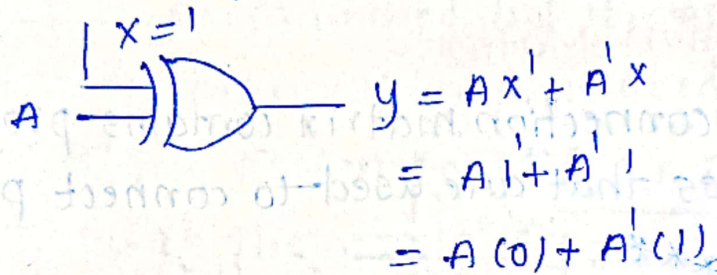 x = 1
A
y = Ax' + A'x
= A1' + A'1
= A(0) + A'(1)